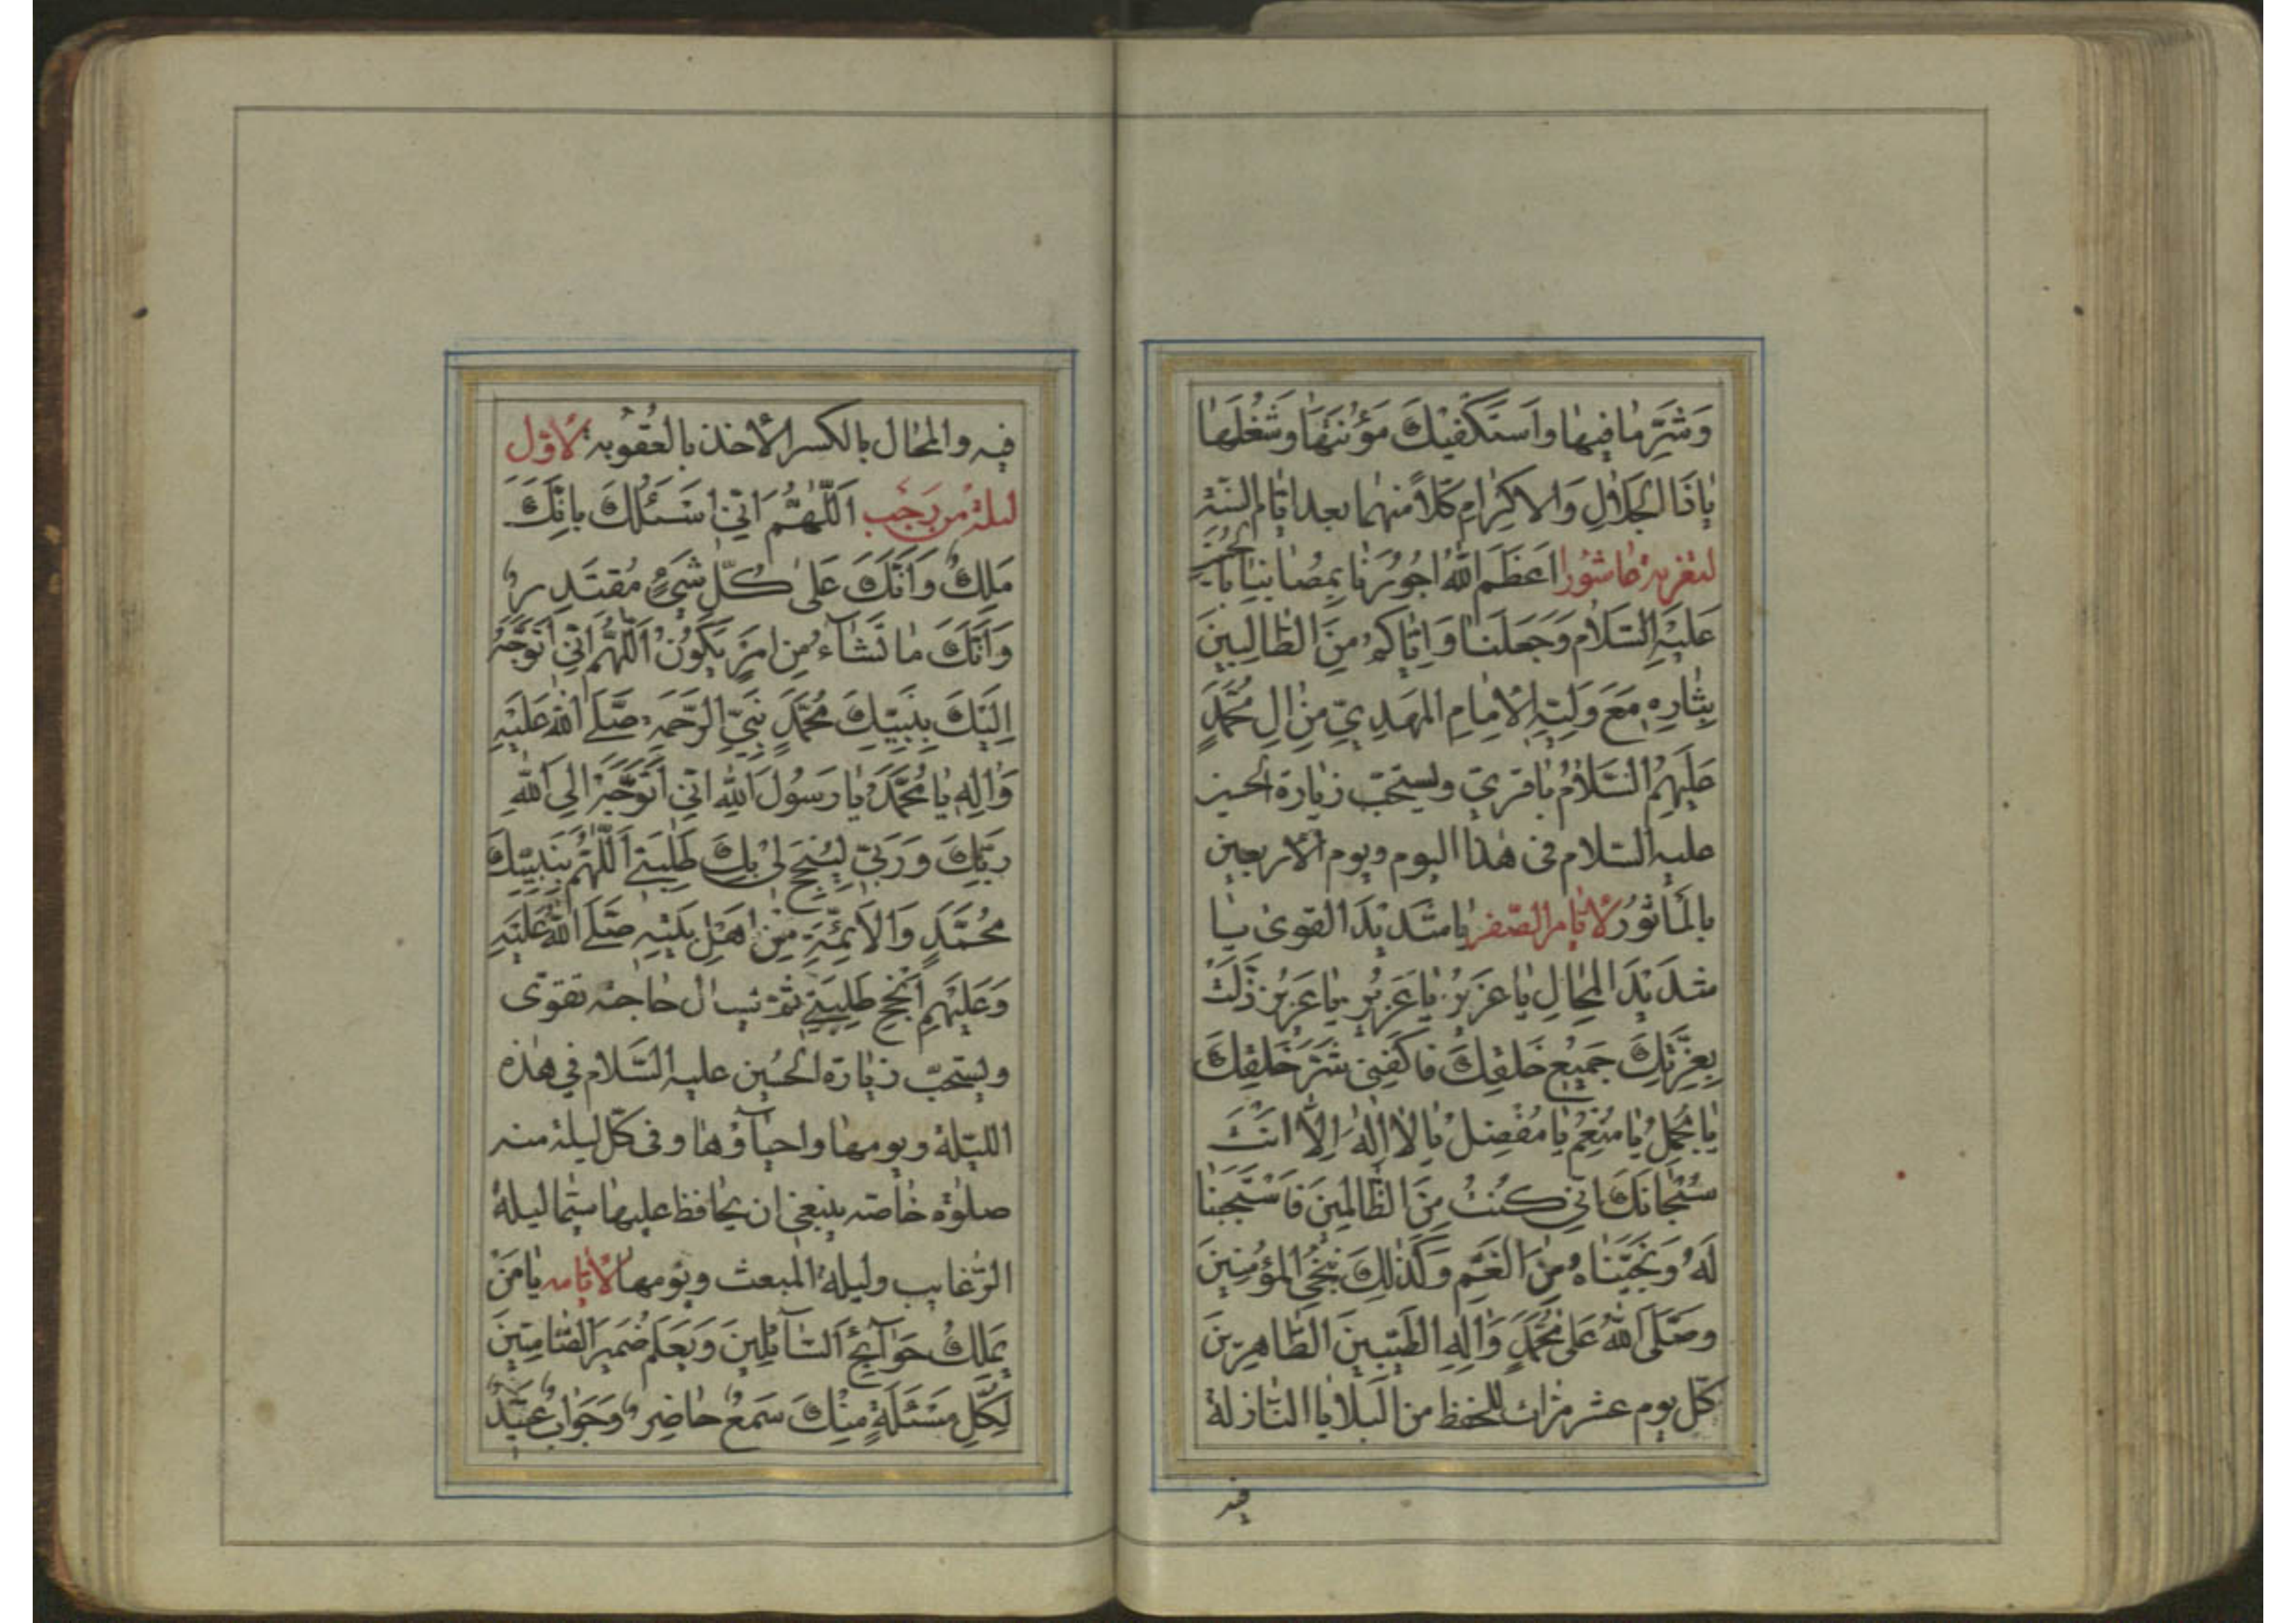 وَشَرِّ مٰا فِيهٰا وَاَسْتَكْفِيْكَ مَؤُنَتَهٰا وَشُغْلَهٰا
يٰا ذَا الْجَلٰالِ وَالاِكْرٰامِ كلّاً منهما بعد ايّام السّنة
لتعزية عاشورا اَعْظَمَ اللّٰهُ اُجُورَنٰا بِمُصٰابِنٰا بِالْحُسَيْنِ
عَلَيْهِ السَّلٰامُ وَجَعَلَنٰا وَاِيّٰاكُمْ مِنَ الطّٰالِبِينَ
بِثٰارِهِ مَعَ وَلِيِّهِ الْاِمٰامِ الْمَهْدِيِّ مِنْ اٰلِ مُحَمَّدٍ
عَلَيْهِمُ السَّلٰامُ باقرىّ ويستحبّ زيارة الحسين
عليه السّلام فى هذا اليوم ويوم الاربعين
بالمأثور لايّام الصّفر يٰا شَدِيْدَ الْقُوىٰ يٰا
شَدِيْدَ الْمِحٰالِ يٰا عَزِيْزُ يٰا عَزِيْزُ يٰا عَزِيْزُ ذَلَّتْ
بِعِزَّتِكَ جَمِيْعُ خَلْقِكَ فَاكْفِنِى شَرَّ خَلْقِكَ
يٰا مُجْمِلُ يٰا مُنْعِمُ يٰا مُفْضِلُ يٰا لٰا اِلٰهَ اِلَّا اَنْتَ
سُبْحٰانَكَ اِنِّى كُنْتُ مِنَ الظّٰالِمِينَ فَاسْتَجَبْنٰا
لَهُ وَنَجَّيْنٰاهُ مِنَ الْغَمِّ وَكَذٰلِكَ نُنْجِى الْمُؤْمِنِينَ
وَصَلَّى اللّٰهُ عَلىٰ مُحَمَّدٍ وَاٰلِهِ الطَّيِّبِينَ الطّٰاهِرِينَ
كلّ يوم عشر مرّات للحفظ من البلايا النّازلة
فيه
فيه والمحال بالكسر الاخذ بالعقوبة لاوّل
ليلة من رجب اَللّٰهُمَّ اِنِّى اَسْئَلُكَ بِاَنَّكَ
مَلِكٌ وَاَنَّكَ عَلىٰ كُلِّ شَيْءٍ مُقْتَدِرٌ
وَاَنَّكَ مٰا تَشٰاءُ مِنْ اَمْرٍ يَكُونُ اَللّٰهُمَّ اِنِّى اَتَوَجَّهُ
اِلَيْكَ بِنَبِيِّكَ مُحَمَّدٍ نَبِيِّ الرَّحْمَةِ صَلَّى اللّٰهُ عَلَيْهِ
وَاٰلِهِ يٰا مُحَمَّدُ يٰا رَسُولَ اللّٰهِ اِنِّى اَتَوَجَّهُ اِلَى اللّٰهِ
رَبِّكَ وَرَبِّى لِيُنْجِحَ لِى بِكَ طَلِبَتِى اَللّٰهُمَّ بِنَبِيِّكَ
مُحَمَّدٍ وَالْاَئِمَّةِ مِنْ اَهْلِ بَيْتِهِ صَلَّى اللّٰهُ عَلَيْهِ
وَعَلَيْهِمْ اَنْجِحْ طَلِبَتِى ثمّ تسال حاجته تقوى
ويستحبّ زيارة الحسين عليه السّلام فى هذه
الليلة ويومها واحياؤها وفى كلّ ليلة منه
صلوة خاصّة ينبغى ان يحافظ عليها سيّما ليلة
الرّغايب وليلة المبعث ويومها لايّامه يٰا مَنْ
يَمْلِكُ حَوٰائِجَ السّٰائِلِينَ وَيَعْلَمُ ضَمِيرَ الصّٰامِتِينَ
لِكُلِّ مَسْئَلَةٍ مِنْكَ سَمْعٌ حٰاضِرٌ وَجَوٰابٌ عَتِيدٌ